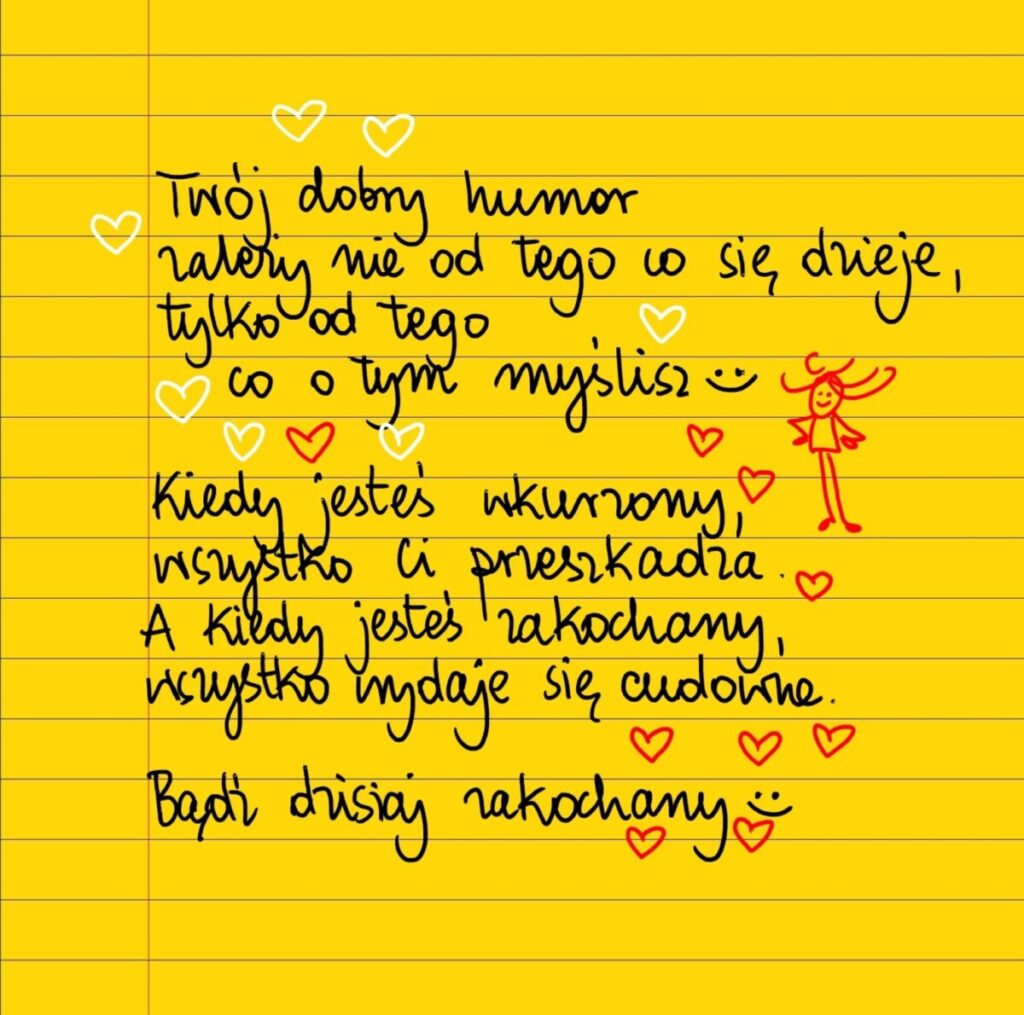 Twój dobry humor
zależy nie od tego co się dzieje,
tylko od tego
co o tym myślisz
Kiedy jesteś wkurzony,
wszystko Ci przeszkadza.
A kiedy jesteś zakochany,
wszystko wydaje się cudowne.
Bądź dzisiaj zakochany